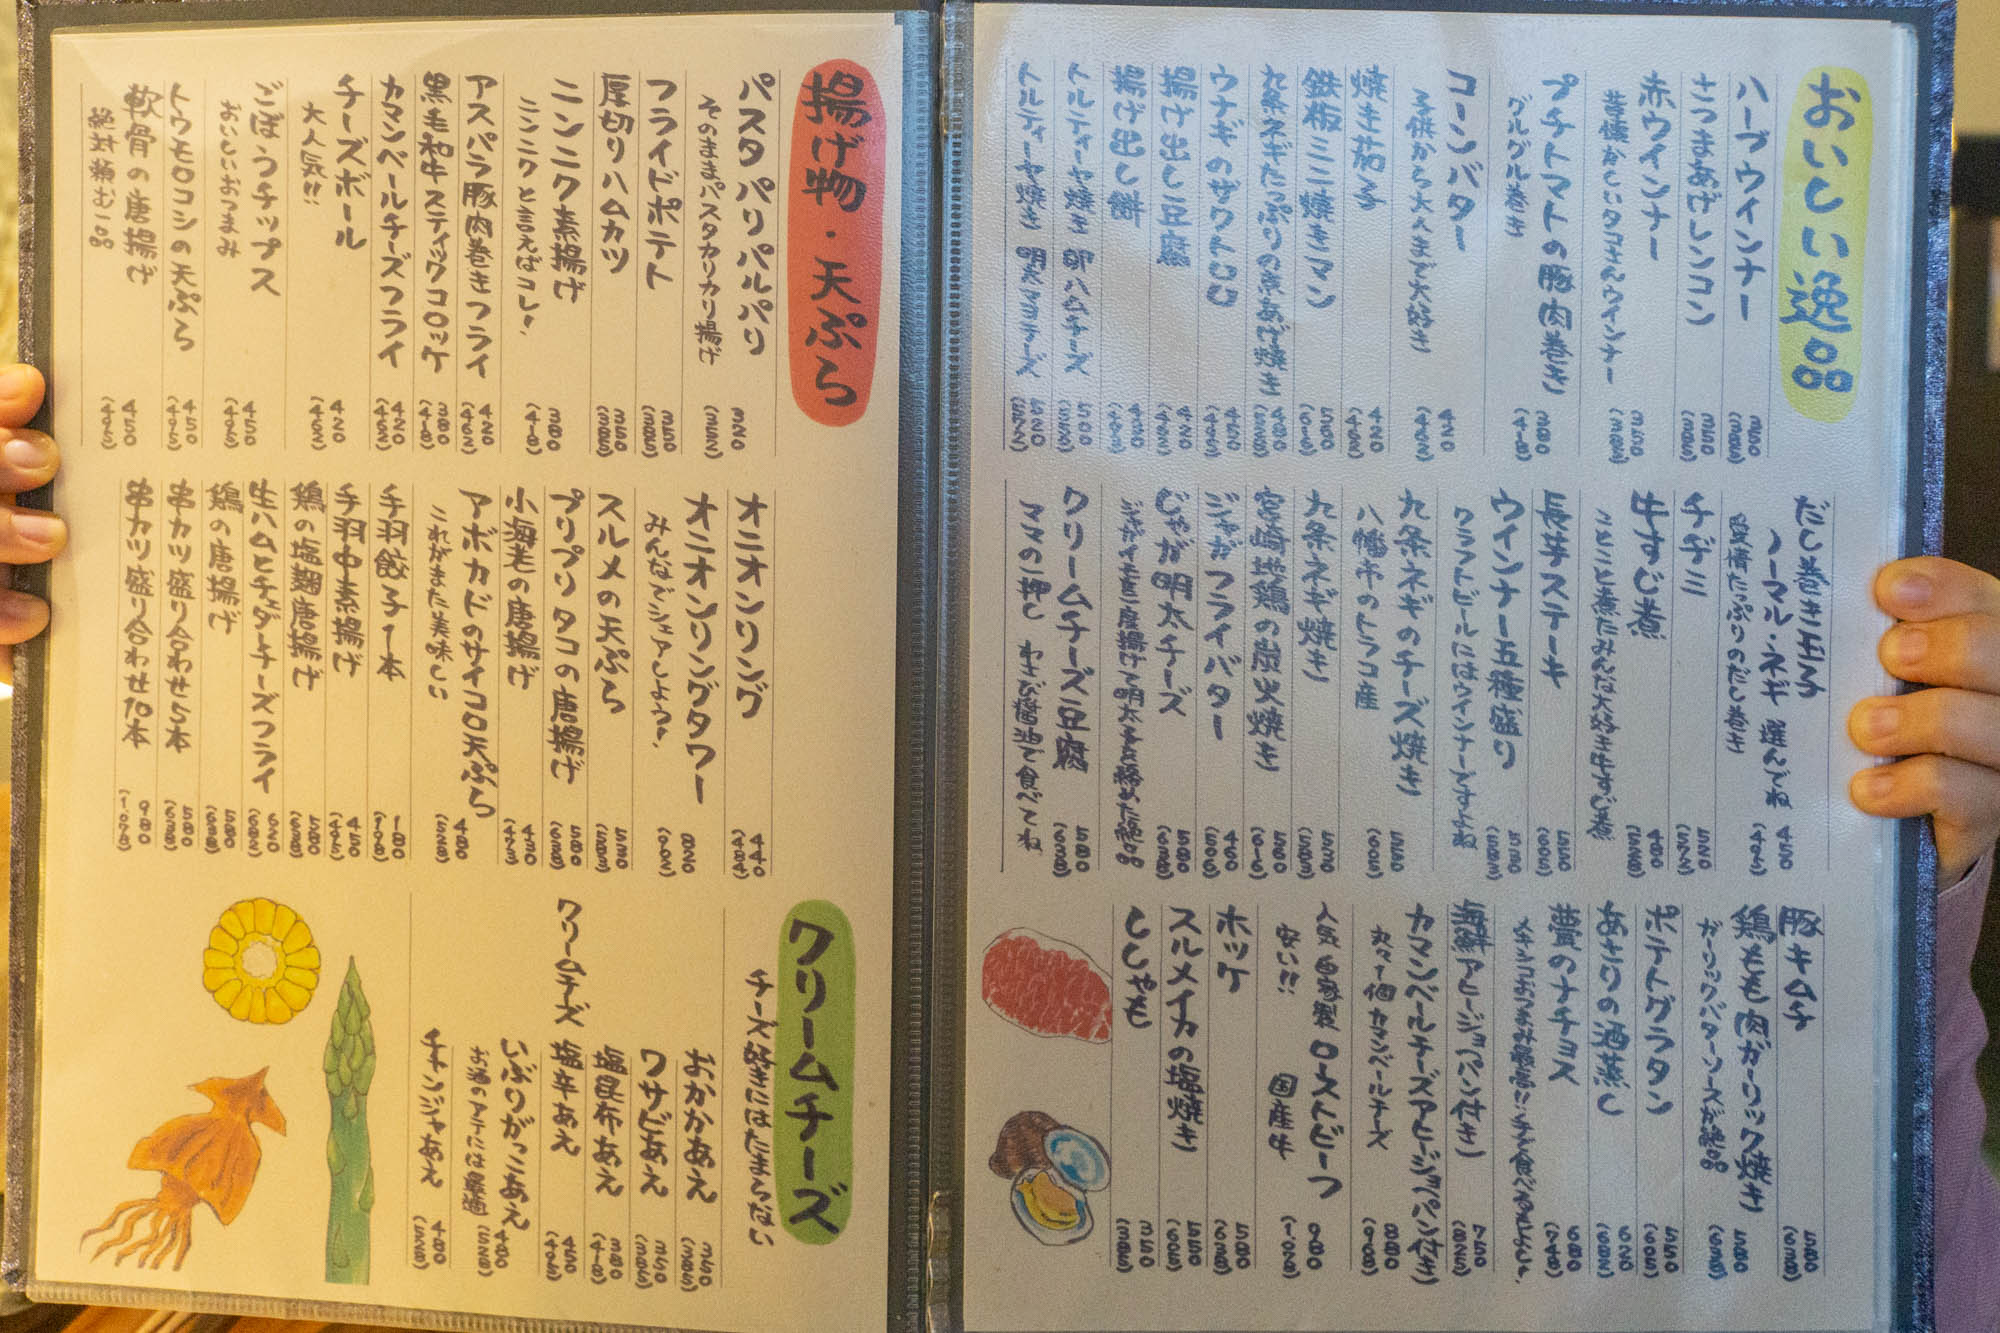 おいしい逸品
ハーブウインナー 350 (385)
さつまあげレンコン 350 (385)
赤ウインナー 350 (385)
昔懐かしいタコさんウインナー
プチトマトの豚肉巻き 380 (418)
グルグル巻き
コーンバター 420 (462)
子供から大人まで大好き
焼き茄子 420 (462)
鉄板ミニ焼きマン
九条ネギたっぷりの厚あげ焼き
ウナギのザクトロ
揚げ出し豆腐 420 (462)
揚げ出し餅
トルティーヤ焼き 生ハムチーズ 500
トルティーヤ焼き 明太マヨチーズ 520 (572)
だし巻き玉子
ノーマル・ネギ 選んでね 450 (495)
愛情たっぷりのだし巻き
チヂミ 520 (572)
牛すじ煮 480 (528)
ことこと煮たみんな大好き牛すじ煮
長芋ステーキ 550 (605)
ウインナー五種盛り 530 (583)
クラフトビールにはウインナーですよね
九条ネギのチーズ焼き 550 (605)
八幡市のトラコ産
九条ネギ焼き 530 (583)
宮崎地鶏の炭火焼き 560 (616)
ジャガフライバター 460 (506)
じゃが明太チーズ 580 (638)
クリームチーズ豆腐 580 (638)
ママの一押し わさび醤油で食べてね
豚キムチ 580 (638)
鶏もも肉ガーリック焼き 580 (638)
ガーリックバターソースが絶品
ポテトグラタン 550 (605)
あさりの酒蒸し 620 (682)
豊のナチョス 680 (748)
海鮮アヒージョ(パン付き) 750 (825)
カマンベールチーズアヒージョ(パン付き) 880 (968)
丸々1個 カマンベールチーズ
人気 自家製 ローストビーフ 980 (1,078)
安い!! 国産牛
ホッケ 580 (638)
スルメイカの塩焼き 550 (605)
ししゃも 350 (385)
揚げ物・天ぷら
パスタパリパルパリ 320 (352)
そのままパスタカリカリ揚げ
フライドポテト 350 (385)
厚切りハムカツ 350 (385)
ニンニク素揚げ 380 (418)
ニンニクと言えばコレ!
アスパラ豚肉巻きフライ 420 (462)
黒毛和牛スティックコロッケ 380 (418)
カマンベールチーズフライ 420 (462)
チーズボール 420 (462)
大人気!!
ごぼうチップス 450 (495)
おいしいおつまみ
トウモロコシの天ぷら 450 (495)
軟骨の唐揚げ 450 (495)
絶対頼む一品
オニオンリング 440 (484)
オニオンリングタワー 820 (902)
みんなでシェアしよっ?
スルメの天ぷら 530 (583)
プリプリタコの唐揚げ 580 (638)
小海老の唐揚げ 430 (473)
アボカドのサイコロ天ぷら 480 (528)
これがまた美味しい
手羽餃子1本 180 (198)
手羽中素揚げ 450 (495)
鶏の塩麹唐揚げ 580 (638)
生ハムとチェダーチーズフライ 620 (682)
鶏の唐揚げ 580 (638)
串カツ盛り合わせ5本 580 (638)
串カツ盛り合わせ10本 980 (1,078)
クリームチーズ
チーズ好きにはたまらない
クリームチーズ
おかかあえ 350 (385)
ワサビあえ 350 (385)
塩昆布あえ 380 (418)
塩辛あえ 450 (495)
いぶりがっこあえ 480 (528)
お酒のアテには最適
チャンジャあえ 480 (528)